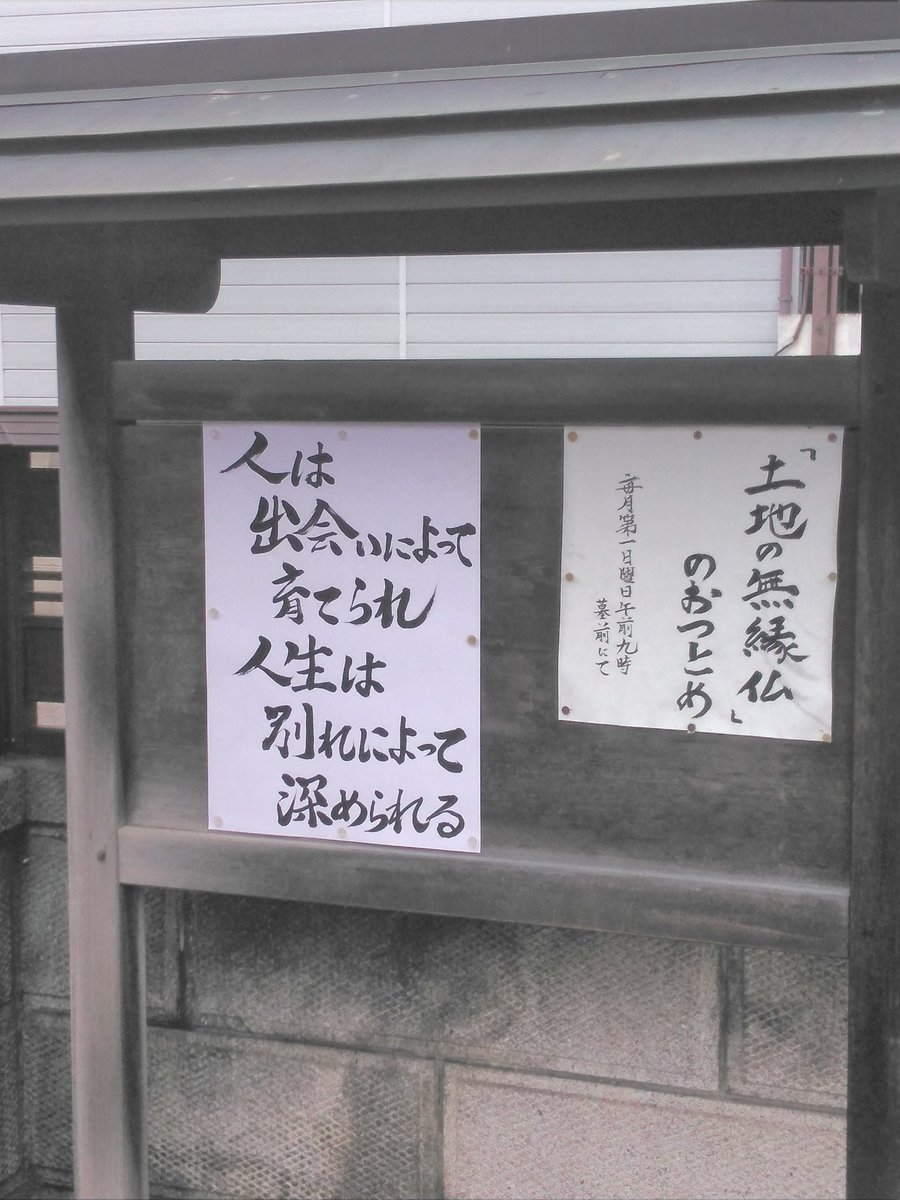 人は
出会いによって
育てられ
人生は
別れによって
深められる
「土地の無縁仏
のおつとめ」
毎月第一日曜日午前九時
墓前にて